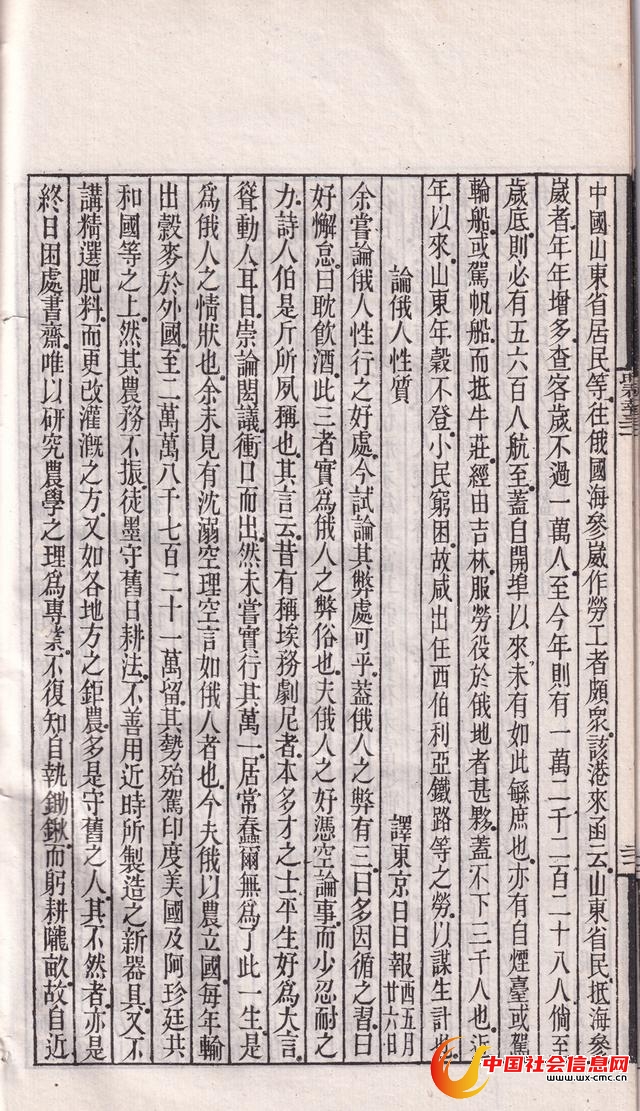 中國山東省居民等往俄國海參崴作勞工者頗衆該港來函云山東省民抵海參
崴者年年增多查客歲不過一萬人至今年則有一萬二千二百二十八人倘至
歲底則必有五六百人航至蓋自開埠以來未有如此緐庶也亦有自煙臺或駕
輪船或駕帆船而抵牛莊經由吉林服勞役於俄地者甚夥蓋不下三千人也近
年以來山東年穀不登小民窮困故咸出任西伯利亞鐵路等之勞以謀生計也
論俄人性質 譯東京日日報 西五月廿六日
余嘗論俄人性行之好處今試論其弊處可乎蓋俄人之弊有三曰多因循之習曰
好懈怠曰耽飲酒此三者實爲俄人之弊俗也夫俄人之好憑空論事而少忍耐之
力詩人伯是斤所夙稱也其言云昔有稱埃務劇尼者本多才之士平生好爲大言
聳動人耳目崇論閎議衝口而出然未嘗實行其萬一居常蠢爾無爲了此一生是
爲俄人之情狀也余未見有沈溺空理空言如俄人者也今夫俄以農立國每年輸
出穀麥於外國至二萬萬八千七百二十一萬留其勢殆駕印度美國及阿珍廷共
和國等之上然其農務不振徒墨守舊日耕法不善用近時所製造之新器具又不
講精選肥料而更改灌漑之方又如各地方之鉅農多是守舊之人其不然者亦是
終日困處書齋唯以研究農學之理爲專業不復知自執鋤鍬而躬耕隴畝故自近
中国社会信息网
www.wx-cmc.cn